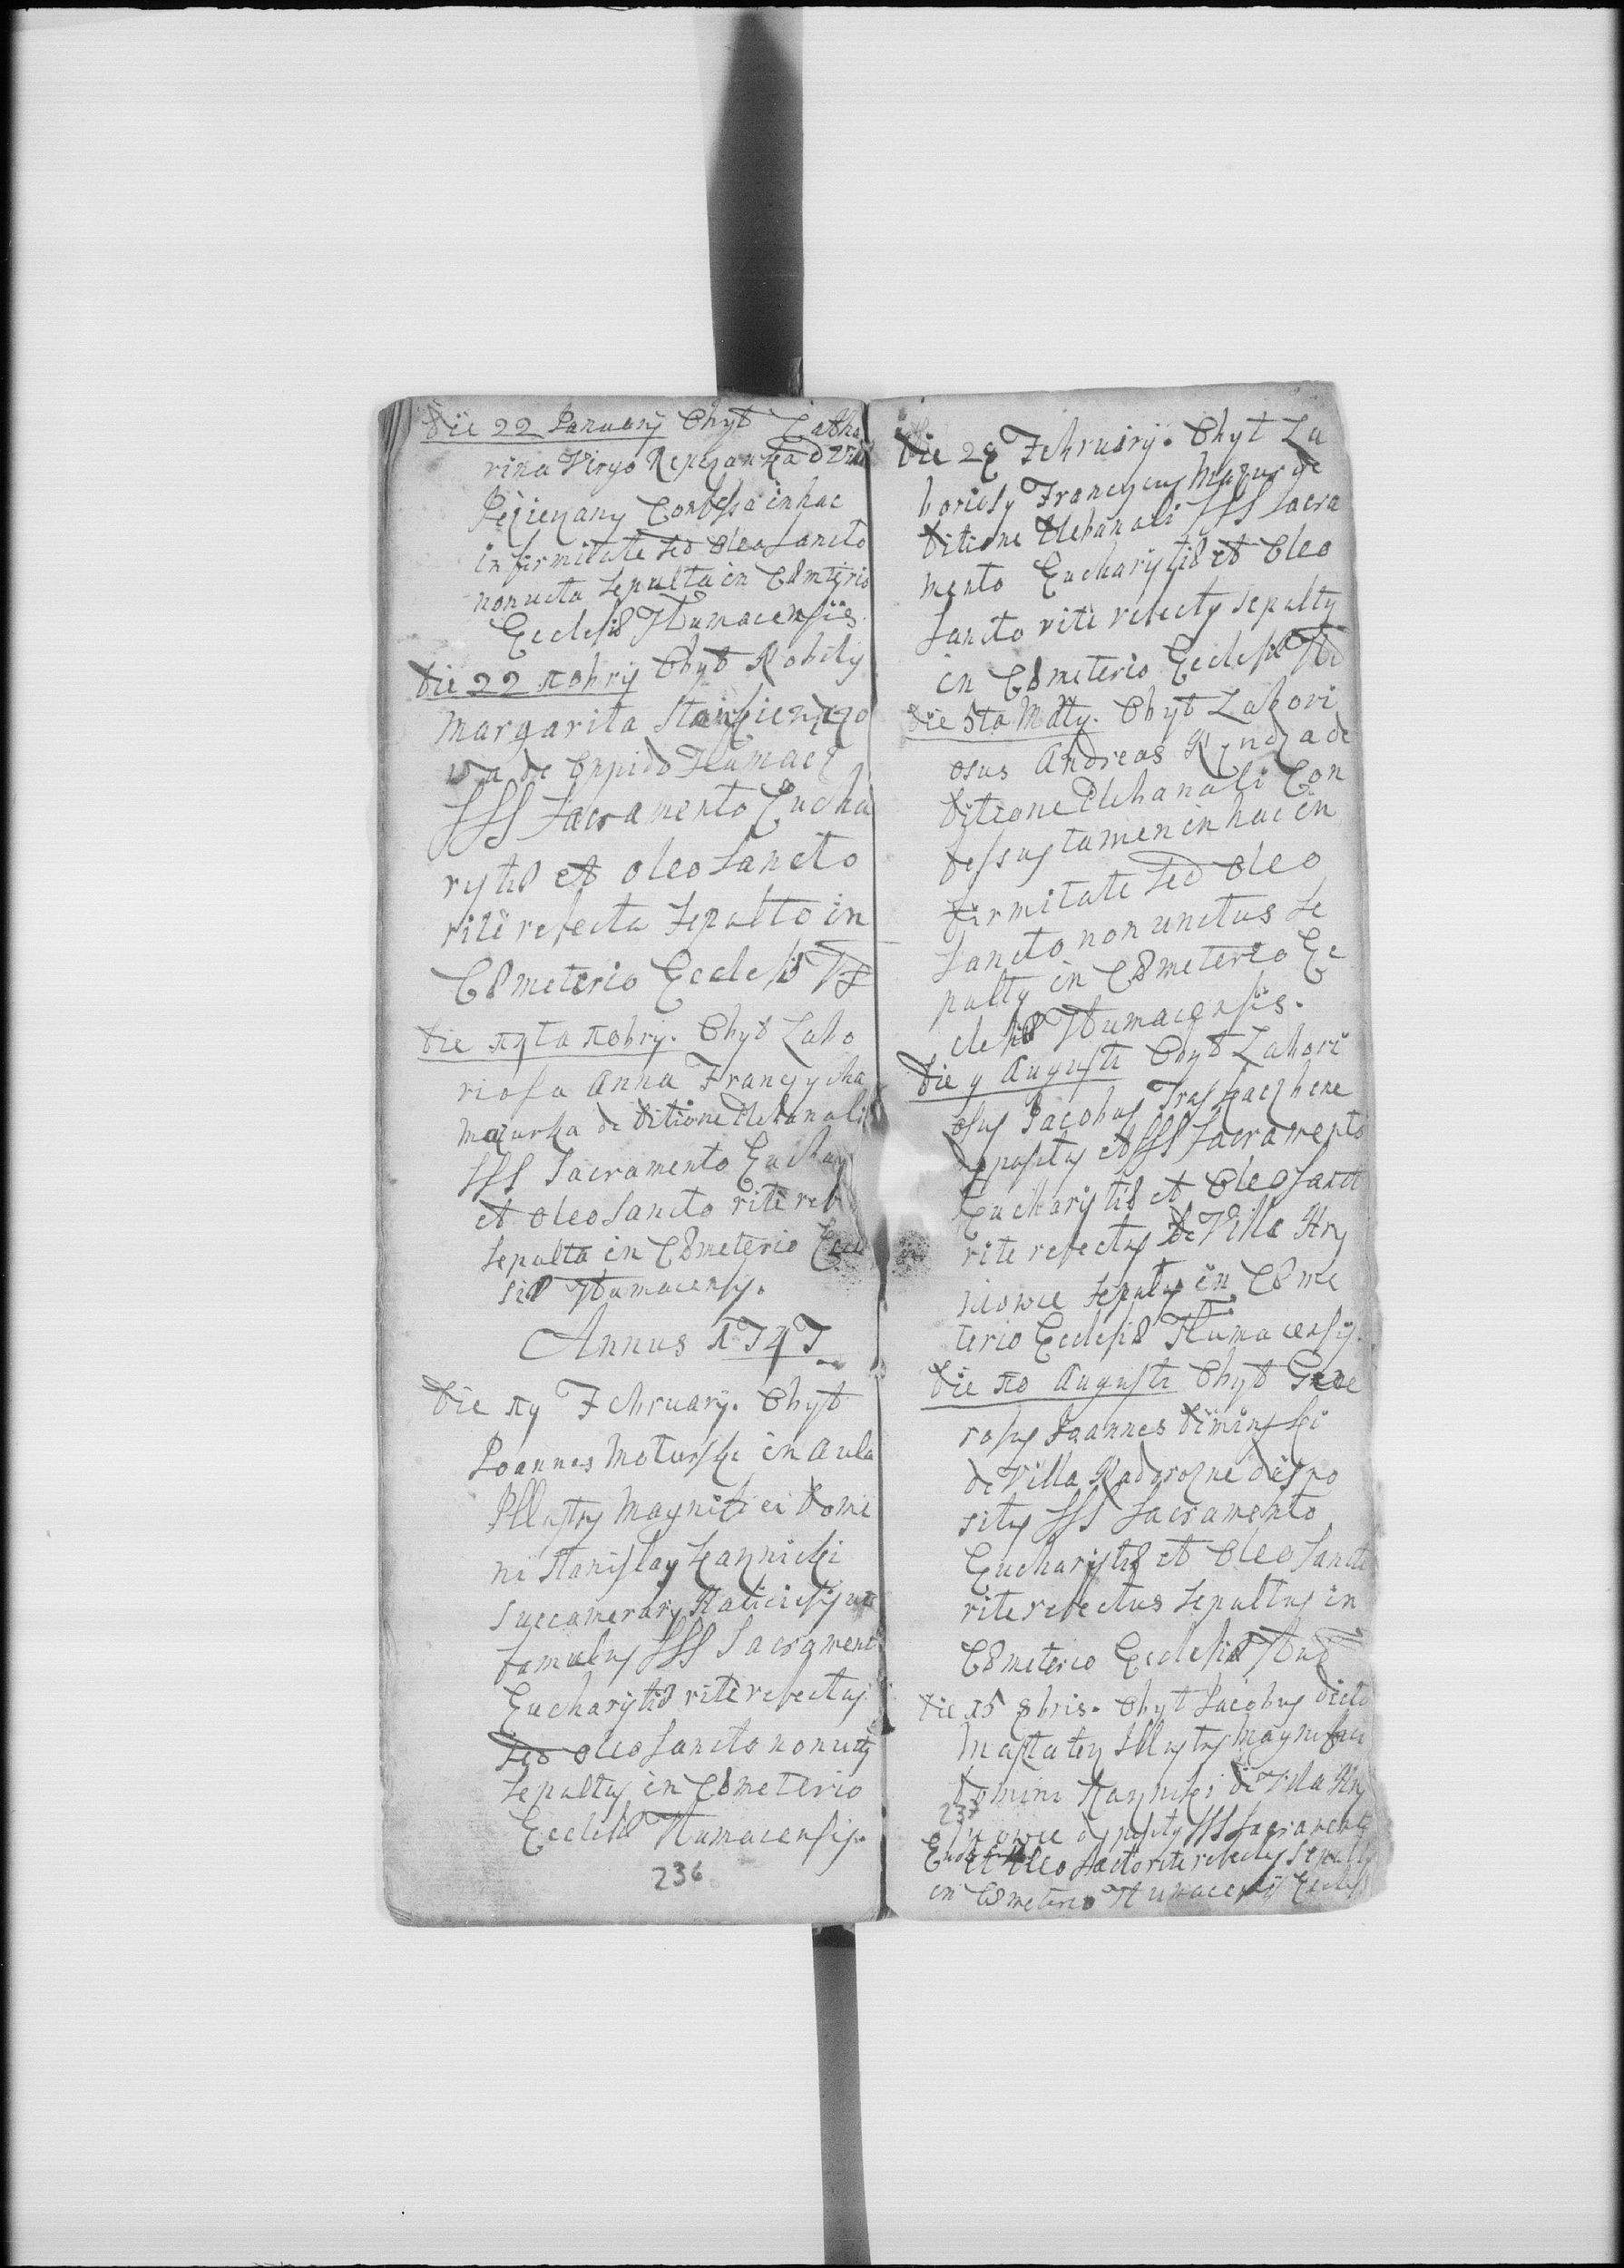 Die 22 January Obyt Catha
rina Virgo Repczanka d Villa
Pejiczany Confessa in hac
infirmitate sed Oleo Sancto
non ucta Sepulta in Cœmtyrio
Ecclesiæ Tłumacensiis
Die 22 xobris Obyt Nobilis
Margarita
wa de Oppido Tłumacz
SSS Sacramento Eucha
rystiæ et oleo Sancto
ritè refecta Sepulto in
Cœmeterio Ecclesiæ Tł
Die xta xobris. Obyt Labo
riosa Anna Francyszka
Mazurka de Ditione Plebanali
SSS Sacramento Euchary
et Oleo Sancto ritè ref
Sepulta in Cœmeterio Eccl
siæ Tłumacensis.
Annus 1747
Die xy February. Obyt
Joannes Moturski in Aula
Illustris Magnifici Domi
ni Stanislay
Succamerary Haliciesis
famulus SSS Sacrament
Eucharystiæ ritè refectus
sed oleo Sancto non uctus
Sepultus in Cœmeterio
Ecclesiæ Tłumacensis.
236
Die 28 February. Obyt La
boriosus Francyscus Mazur de
Ditione Plebanali SSS Sacra
mento Eucharystiæ et Oleo
Sancto ritè refectus sepultus
in Cœmeterio Ecclesiæ Tłu
Die 5ta Maty. Obyt Labori
osus Andreas Kyndza de
Ditione Plebanali Con
fessus tamen in hac in
firmitate sed Oleo
Sancto non unctus Se
pultus in Cœmeterio Ec
clesiæ Tłumacensis.
Die y Augusti Obyt Labori
osus Jacobus bene
dysposytus et SSS Sacramento
Eucharystiæ et Oleo Sanct
rite refectus de Villa Hry
niowce sepultus in Cœme
terio Ecclesiæ Tłumacensis.
Die xo Augusti Obyt Gene
rosus Joannes Diminski
de Villa Nadorozne dispo
situs SSS Sacramento
Eucharystiæ et Oleo Sancto
rite refectus Sepultus in
Cœmeterio Ecclesiæ Tłu
Die 15 8bris. Obyt Jacobus dicto
Masztalerz Illustris Magnifici
Domini de Villa Hry
237
niowce dyspositus SSS Sacramento
et Oleo Sacto rite refectus Sepultus
in Cœmeterio Tłumacensis Eccles